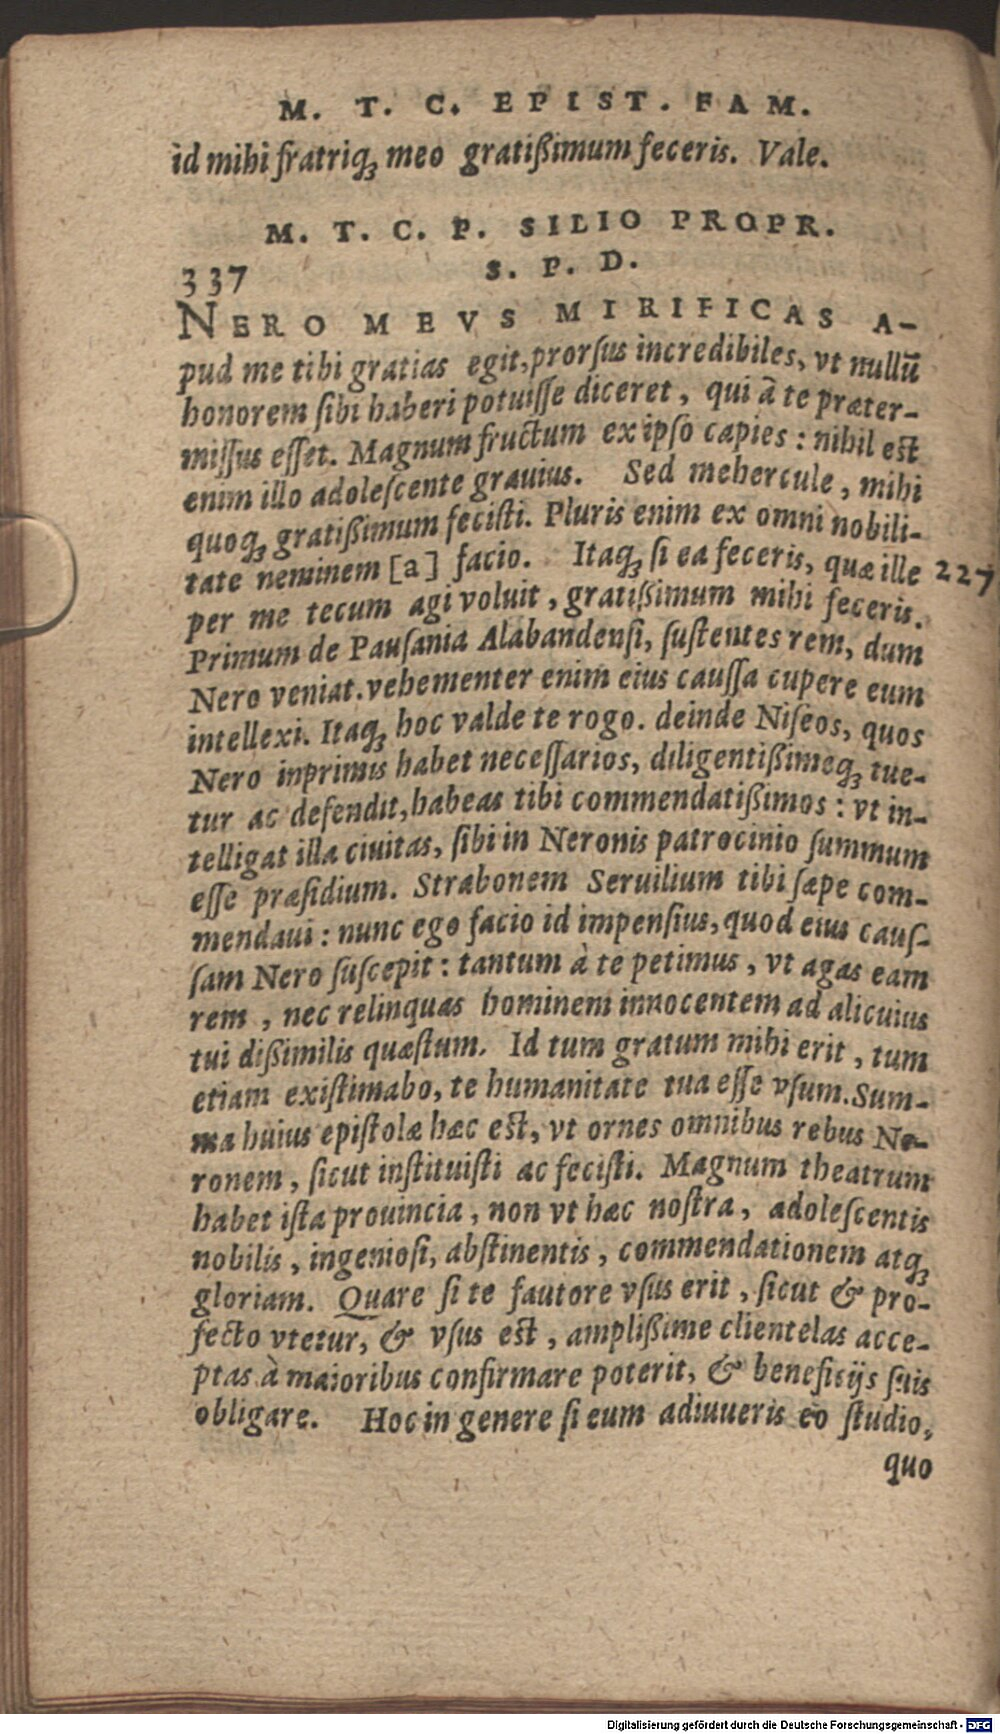 M. T. C. EPIST. FAM.
id mihi fratriq́ꝫ meo gratißimum feceris. Vale.
M. T. C. P. SILIO PROPR.
S. P. D.
337
NERO MEVS MIRIFICAS A-
pud me tibi gratias egit, prorſus incredibiles, vt nullũ
honorem ſibi haberi potuiſſe diceret, qui à te præter-
miſſus eſſet. Magnum fructum ex ipſo capies: nihil est
enim illo adoleſcente grauius. Sed mehercule, mihi
quoqꝫ gratißimum feciſti. Pluris enim ex omni nobili-
tate neminem [a] facio. Itaqꝫ ſi ea feceris, quæ ille 227
per me tecum agi voluit, gratißimum mihi feceris.
Primum de Pauſania Alabandenſi, ſuſtentes rem, dum
Nero veniat. vehementer enim eius cauſſa cupere eum
intellexi. Itaqꝫ hoc valde te rogo. deinde Niſeos, quos
Nero inprimis habet neceſſarios, diligentißimeqꝫ tue-
tur ac defendit, habeas tibi commendatißimos: vt in-
telligat illa ciuitas, ſibi in Neronis patrocinio ſummum
eſſe præſidium. Strabonem Seruilium tibi ſæpe com-
mendaui: nunc ego facio id impenſius, quod eius cauſ-
ſam Nero ſuſcepit: tantum à te petimus, vt agas eam
rem, nec relinquas hominem innocentem ad alicuius
tui dißimilis quæſtum. Id tum gratum mihi erit, tum
etiam exiſtimabo, te humanitate tua eſſe vſum. Sum-
ma huius epiſtolæ hæc est, vt ornes omnibus rebus Ne-
ronem, ſicut inſtituiſti ac feciſti. Magnum theatrum
habet iſta prouincia, non vt hæc noſtra, adoleſcentis
nobilis, ingenioſi, abſtinentis, commendationem atqꝫ
gloriam. Quare ſi te fautore vſus erit, ſicut & pro-
fecto vtetur, & vſus est, amplißime clientelas acce-
ptas à maioribus confirmare poterit, & beneficijs ſuis
obligare. Hoc in genere ſi eum adiuueris eo ſtudio,
quo
Digitalisierung gefördert durch die Deutsche Forschungsgemeinschaft - DFG